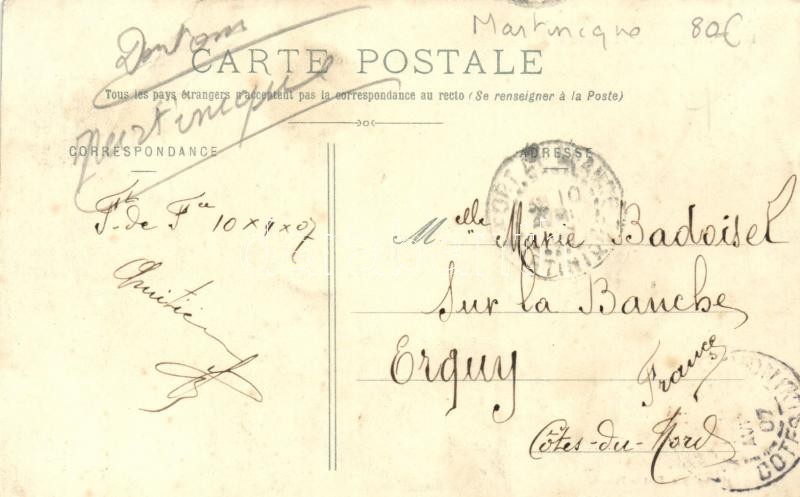 Martinique 80€
CARTE POSTALE
Tous les pays étrangers n'acceptent pas la correspondance au recto (Se renseigner à la Poste)
Martinique
CORRESPONDANCE
ADRESSE
Ft de Fce 10 x 4 x 07
FORT DE FRANCE
10
MARTINIQUE
Melle Marie Badoisel
Sur la Banche
Erquy
France
Côtes-du-Nord
07
COTES